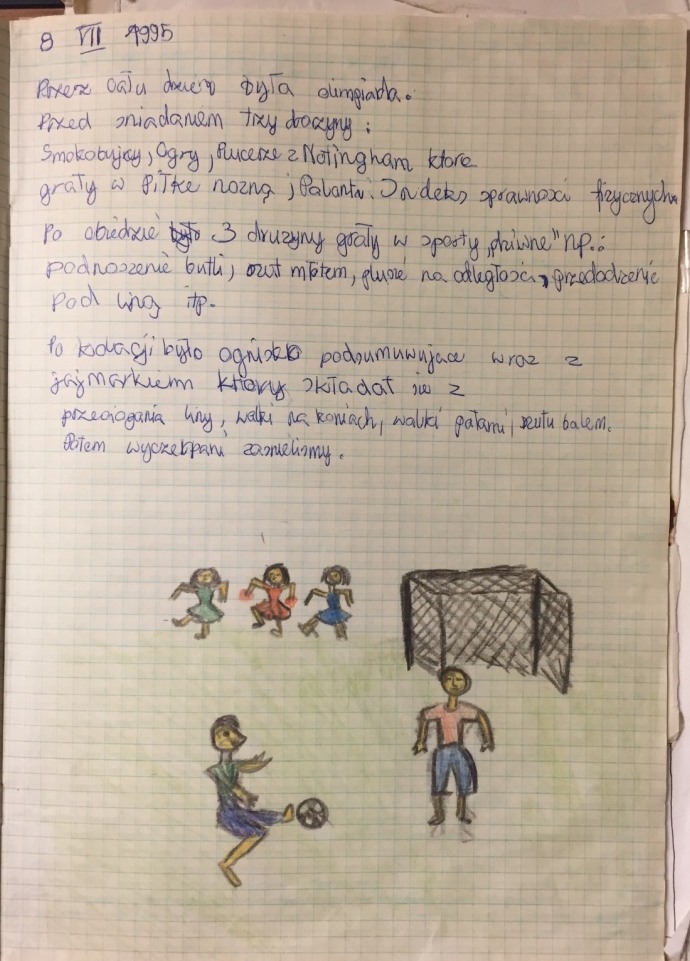 8 VII 1995
Przez cały dzień była olimpiada.
Przed sniadaniem trzy drożyny :
Smokobujcy, Ogry, Rucerze z Notingham ktore
grały w Piłke nożną, Palanta. Indeks sprawności fizycznych
Po obiedzie było 3 drużyny grały w sporty "dziwne" np.:
podnoszenie butli, rzut młotem, plucie na odległość, przechodzenie
pod liną itp.
Po kolacji było ognisko podsumuwujace wraz z
jajmarkiem który składał sie z
przeciogania liny, walki na koniach, walki pałami, rzutu balem.
Potem wyczerpani zasnelismy.